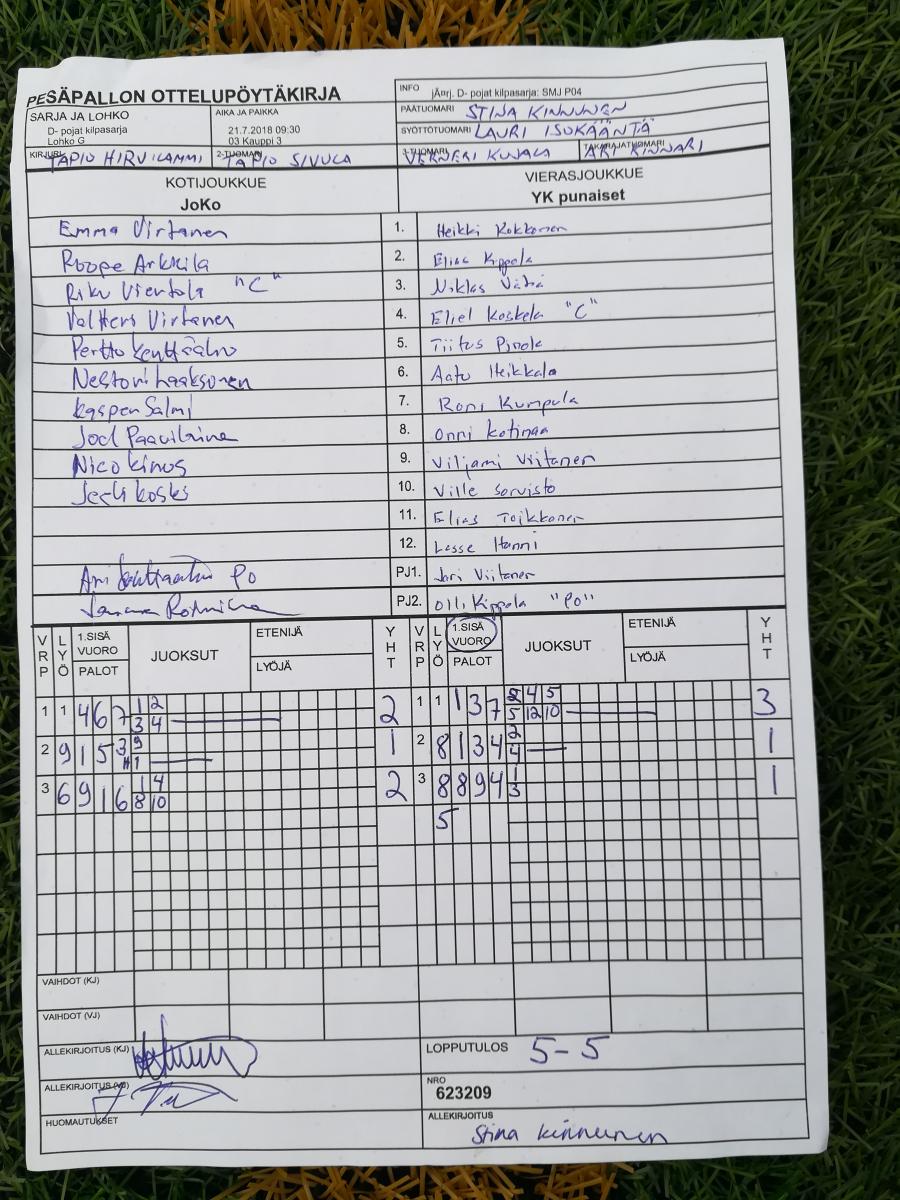 PESÄPALLON OTTELUPÖYTÄKIRJA
INFO jÄrrj. D- pojat kilpasarja: SMJ P04
PÄÄTUOMARI STINA KINNUNEN
SARJA JA LOHKO
D- pojat kilpasarja
Lohko G
AIKA JA PAIKKA
21.7.2018 09:30
03 Kauppi 3
SYÖTTÖTUOMARI LAURI ISOKÄÄNTÄ
KIRJURI TAPIO HIRVILAMMI 2-TUOMARI TAPIO SIVULA 3-TUOMARI VERNERI KUJALA TAKARAJATUOMARI ARI KINNARI
KOTIJOUKKUE VIERASJOUKKUE
JoKo YK punaiset
Emma Virtanen 1. Heikki Kokkonen
Roope Arkkila 2. Elias Kippola
Riku Viertola "C" 3. Niklas
Valtteri Virtanen 4. Eliel Koskela "C"
Perttu Kenttäaho 5. Tiitus
Nestori Laaksonen 6. Aatu Heikkala
Kasper Salmi 7. Roni Kumpula
Joel 8. Onni
Nico 9. Viljami Viitanen
Koski 10. Ville Sorvisto
11. Elias Toikkonen
12. Lasse Hanni
PO PJ1. Jari Viitanen
PJ2. Olli Kippola "PO"
VRP LYÖ 1.SISÄ VUORO PALOT JUOKSUT ETENIJÄ LYÖJÄ YHT VRP LYÖ 1.SISÄ VUORO PALOT JUOKSUT ETENIJÄ LYÖJÄ YHT
1 1 4 6 7 1 2 2 1 1 1 3 7 2 4 5 3
3 4 5 12 10
2 9 1 5 3 9 1 2 8 1 3 4 2 1
1 4
3 6 9 1 6 1 4 2 3 8 8 9 4 1 1
8 10 3
5
VAIHDOT (KJ)
VAIHDOT (VJ)
ALLEKIRJOITUS (KJ) LOPPUTULOS 5-5
ALLEKIRJOITUS (VJ) NRO
623209
HUOMAUTUKSET ALLEKIRJOITUS
Stina Kinnunen